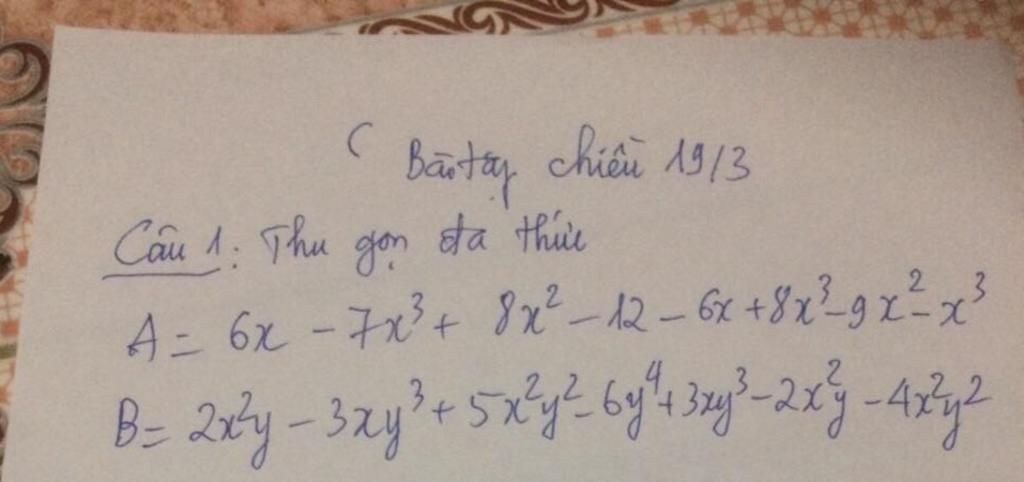 ( Bài tập chiều 19/3
Câu 1: Thu gọn đa thức
A = 6x - 7x³ + 8x² - 12 - 6x + 8x³ - 9x² - x³
B = 2x²y - 3xy³ + 5x²y² - 6y⁴ + 3xy³ - 2x²y - 4x²y²